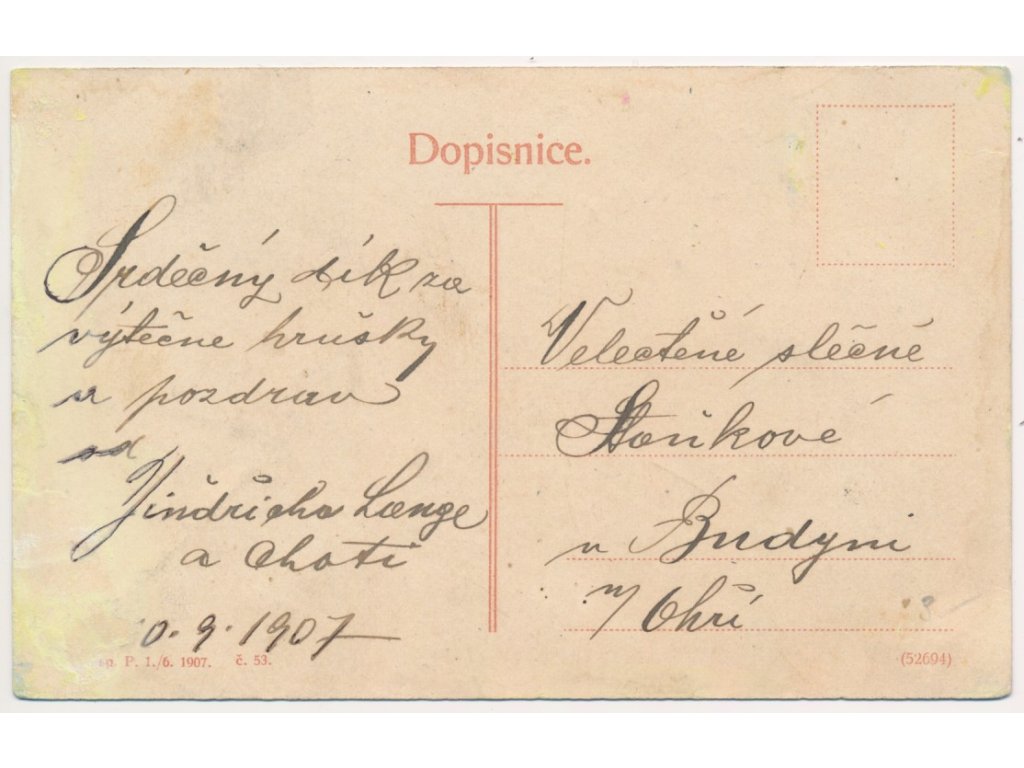 Dopisnice.
Srdečný dík za
výtečne hrušky
a pozdrav
od
Jindřicha Lange
a choti
0. 9. 1907
P. 1./6. 1907. č. 53.
Velectěné slěčně
v Budyni
n/ Ohří
(52694)